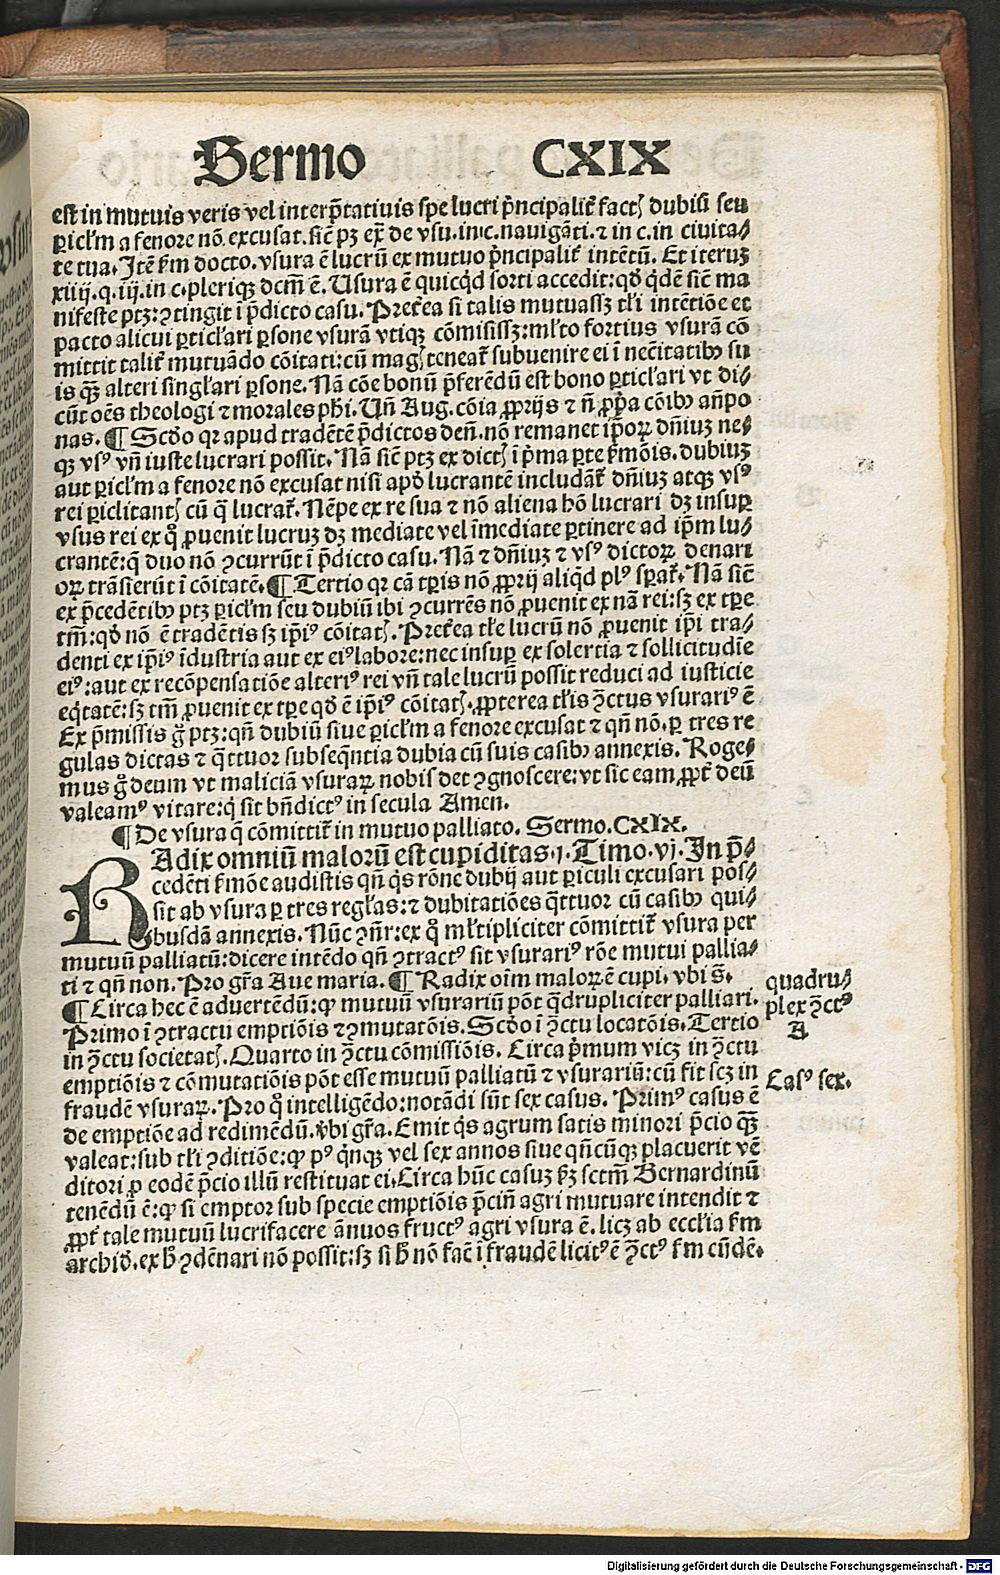 Sermo CXIX
est in mutuis veris vel interp̄tatiuis spe lucri p̄ncipalit̄ factꝭ dubiū seu
ꝑicl'm a fenore nō excusat. sic̄ pꝫ ex̄ de vsu. in c. nauigāti. ⁊ in c. in ciuita⸗
te tua. Itē ẜm docto. vsura ē lucrū ex mutuo p̄ncipalit̄ intētū. Et iteruꝫ
xiiij. q. iij. in c. pleriqꝫ dcm̄ ē. Usura ē quicq̇d sorti accedit: qd̓ q̇dē sic̄ ma
nifeste ptꝫ: ꝯtingit ī p̄dicto casu. Pret̄ea si talis mutuassꝫ tl'i intētiōe et
pacto alicui ꝑticl'ari ꝑsone vsurā vtiqꝫ cōmisissꝫ: ml'to fortius vsurā cō
mittit talit̄ mutuādo cōitati: cū magꝭ teneat̄ subuenire ei ī nec̄itatibꝰ su
is qꝫ̄ alteri singl'ari ꝑsone. Nā cōe bonū p̄ferēdū est bono ꝑticl'ari vt di⸗
cūt oēs theologi ⁊ morales ph̄i. Un̄ Aug. cōia ꝓprijs ⁊ n̄ ꝓp̄a cōibꝰ an̄po
nas. ¶ Scd̓o qr apud tradētē p̄dictos den̄. nō remanet ip̄oꝝ dn̄iuꝫ ne⸗
qꝫ vsꝰ vn̄ iuste lucrari possit. Nā sic̄ ptꝫ ex dictꝭ ī p̄ma ꝑte ẜmōis. dubiuꝫ
aut ꝑicl'm a fenore nō excusat nisi apd̓ lucrantē includat̄ dn̄iuꝫ atqꝫ vsꝰ
rei ꝑiclitantꝭ cū q̄ lucrat̄. Nēpe ex re sua ⁊ nō aliena hō lucrari dꝫ insuꝑ
vsus rei ex qͦ ꝓuenit lucruꝫ dꝫ mediate vel īmediate ꝑtinere ad ip̄m lu⸗
crantē: q̄ duo nō ꝯcurrūt ī p̄dicto casu. Nā ⁊ dn̄iuꝫ ⁊ vsꝰ dictoꝝ denari
oꝝ trāsierūt ī cōitatē. ¶ Tertio qr cā tꝑis nō ꝓprij aliq̇d plꝰ sꝑat̄. Nā sic̄
ex p̄cedētibꝰ ptꝫ ꝑicl'm seu dubiū ibi ꝯcurrēs nō ꝓuenit ex nā rei: sꝫ ex tꝑe
tm̄: qd̓ nō ē tradētis sꝫ ip̄iꝰ cōitatꝭ. Pret̄ea tl'e lucrū nō ꝓuenit ip̄i tra⸗
denti ex ip̄iꝰ īdustria aut ex eiꝰ labore: nec insuꝑ ex solertia ⁊ sollicitudīe
eiꝰ: aut ex recōpensatiōe alteriꝰ rei vn̄ tale lucrū possit reduci ad iusticie
eq̇tatē: sꝫ tm̄ ꝓuenit ex tꝑe qd̓ ē ip̄iꝰ cōitatꝭ. ꝓpterea tl'is ꝯ̄ctus vsurariꝰ ē
Ex p̄missis gͦ ptꝫ: qn̄ dubiū siue ꝑicl'm a fenore excusat ⁊ qn̄ nō. ꝑ tres re
gulas dictas ⁊ q̄ttuor subseq̄ntia dubia cū suis casibꝰ annexis. Roge⸗
mus gͦ deum vt maliciā vsuraꝝ nobis det ꝯgnoscere: vt sic eam ꝓpt̄ deū
valeamꝰ vitare: q̇ sit bn̄dictꝰ in secula Amen.
¶ De vsura q̄ cōmittit̄ in mutuo palliato. Sermo. CXIX.
RAdix omniū maloruꝫ est cupiditas. j. Timo. vj. In p̄⸗
cedēti ẜmōe audistis qn̄ q̇s rōne dubij aut ꝑiculi excusari pos⸗
sit ab vsura ꝑ tres regl'as: ⁊ dubitatiōes q̄ttuor cū casibꝰ qui⸗
busdā annexis. Nūc ꝯn̄r: ex qͦ ml'tipliciter cōmittit̄ vsura per
mutuū palliatū: dicere intēdo qn̄ ꝯtractꝰ sit vsurariꝰ rōe mutui pallia⸗
ti ⁊ qn̄ non. Pro gr̄a Aue maria. ¶ Radix oīm maloꝝ ē cupi. vbi s̄.
¶ Circa hec ē aduertēdū: ꝙ mutuū vsurariū pōt q̄drupliciter palliari.
Primo ī ꝯtractu emptiōis ⁊ ꝯmutatōis. Scd̓o ī ꝯ̄ctu locatōis. Tertio
in ꝯ̄ctu societatꝭ. Quarto in ꝯ̄ctu cōmissiōis. Circa p̄mum vicꝫ in ꝯ̄ctu
emptiōis ⁊ cōmutatiōis pōt esse mutuū palliatū ⁊ vsurariū: cū fit scꝫ in
fraudē vsuraꝝ. Pro qͦ intelligēdo: notādi sūt sex casus. Primꝰ casus ē
de emptiōe ad redimēdū. Ubi gr̄a. Emit q̇s agrum satis minori p̄cio qꝫ̄
valeat: sub tl'i ꝯditiōe: ꝙ pꝰ q̇nqꝫ vel sex annos siue qn̄cūqꝫ placuerit vē
ditori ꝓ eodē p̄cio illū restituat ei. Circa hūc casuꝫ ẜꝫ sctm̄ Bernardinū
tenēdū ē: ꝙ si emptor sub specie emptiōis p̄ciū agri mutuare intendit ⁊
ꝓpt̄ tale mutuū lucrifacere ānuos fructꝰ agri vsura ē. licꝫ ab eccl'ia ẜm
archid̓. ex ħ ꝯdēnari nō possit: sꝫ si ħ nō fac̄ ī fraudē licitꝰ ē ꝯ̄ctꝰ ẜm eūdē.
quadru⸗
plex ꝯ̄ctꝰ
A
Casꝰ sex.
Digitalisierung gefördert durch die Deutsche Forschungsgemeinschaft - DFG